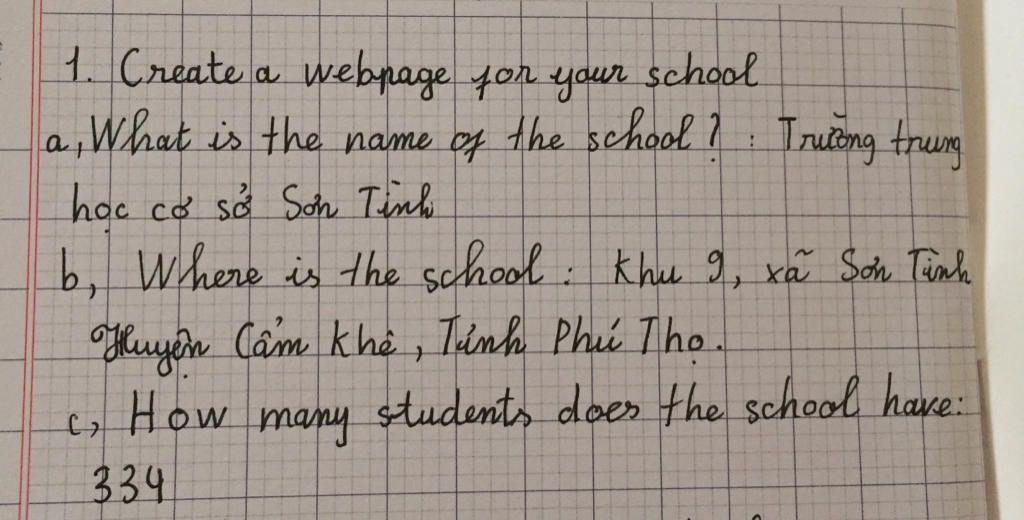 1. Create a webpage for your school
a, What is the name of the school? : Trường trung
học cơ sở Sơn Tình
b, Where is the school : Khu 9, xã Sơn Tình
Huyện Cẩm Khê, Tỉnh Phú Thọ.
c, How many students does the school have:
334